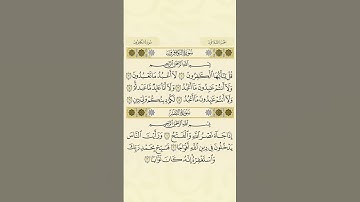 سورة الكافرون
بسم الله الرحمن الرحيم
قل يـأيها الكـفرون ۝ لا أعبد ما تعبدون ۝
ولا أنتم عـبدون ما أعبد ۝ ولا أنا عابد ما عبدتم ۝
ولا أنتم عـبدون ما أعبد ۝ لكم دينكم ولي دين ۝
سورة النصر
بسم الله الرحمن الرحيم
إذا جاء نصر الله والفتح ۝ ورأيت الناس
يدخلون في دين الله أفواجا ۝ فسبح بحمد ربك
واستغفره إنه كان توابا ۝